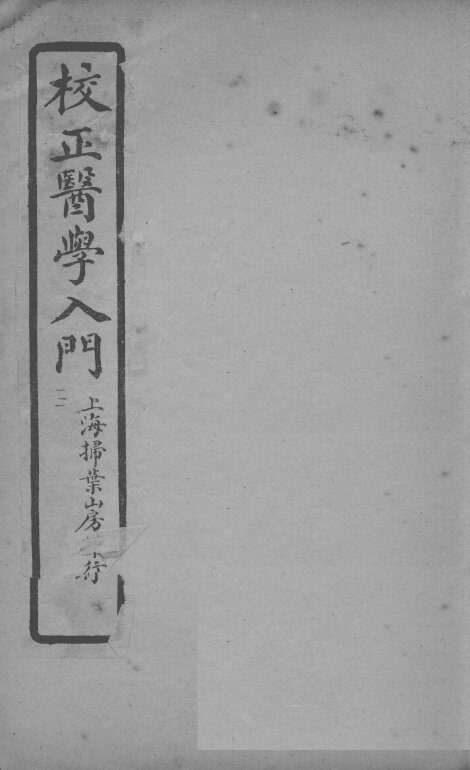 校正醫學入門
二
上海掃葉山房行